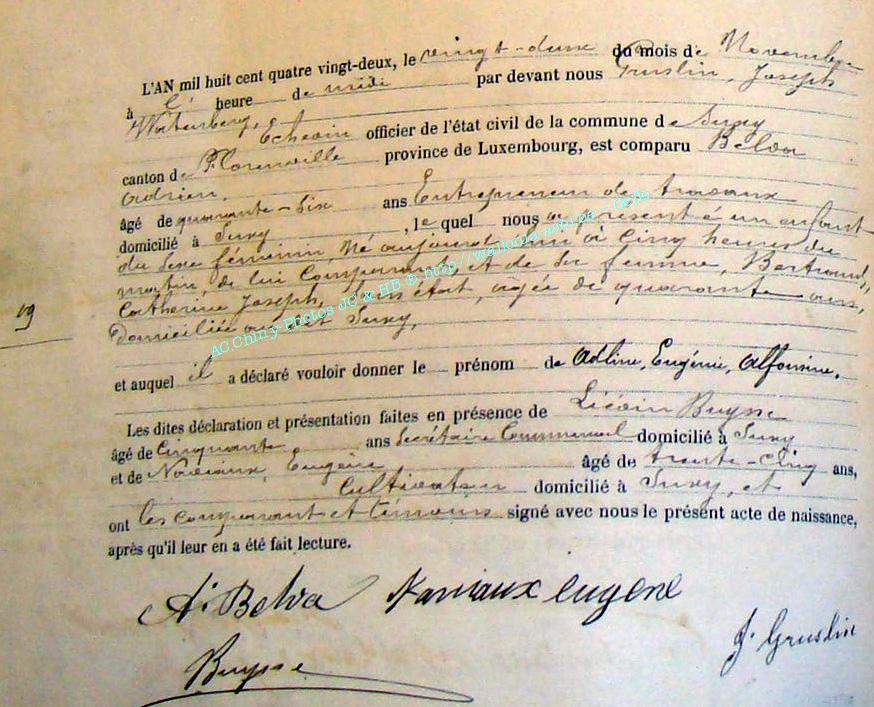 L'AN mil huit cent quatre vingt-deux, le vingt-deux du mois de Novembre
à l' heure de midi par devant nous Gruslin, Joseph
Echevin officier de l'état civil de la commune de Suxy
canton de Florenville province de Luxembourg, est comparu Belva
Adrien,
âgé de quarante-six ans Entrepreneur de travaux
domicilié à Suxy , le quel nous a présenté un enfant
du sexe féminin, né aujourd'hui à cinq heures du
matin de lui comparant, et de sa femme, Bertrand,
Catherine Joseph, sans état, agée de quarante ans,
domiciliée au dit Suxy,
19
et auquel il a déclaré vouloir donner le prénom de Adline, Eugénie, Alfonsine.
Les dites déclaration et présentation faites en présence de Buysse
âgé de Cinquante ans Secrétaire Communal domicilié à Suxy
et de Naviaux, Eugène âgé de trente-cinq ans,
Cultivateur domicilié à Suxy, et
ont les comparant et témoins signé avec nous le présent acte de naissance,
après qu'il leur en a été fait lecture.
A. Belva Naviaux eugene
J. Gruslin
Buysse
AC Chiny Photos JC & HB ©